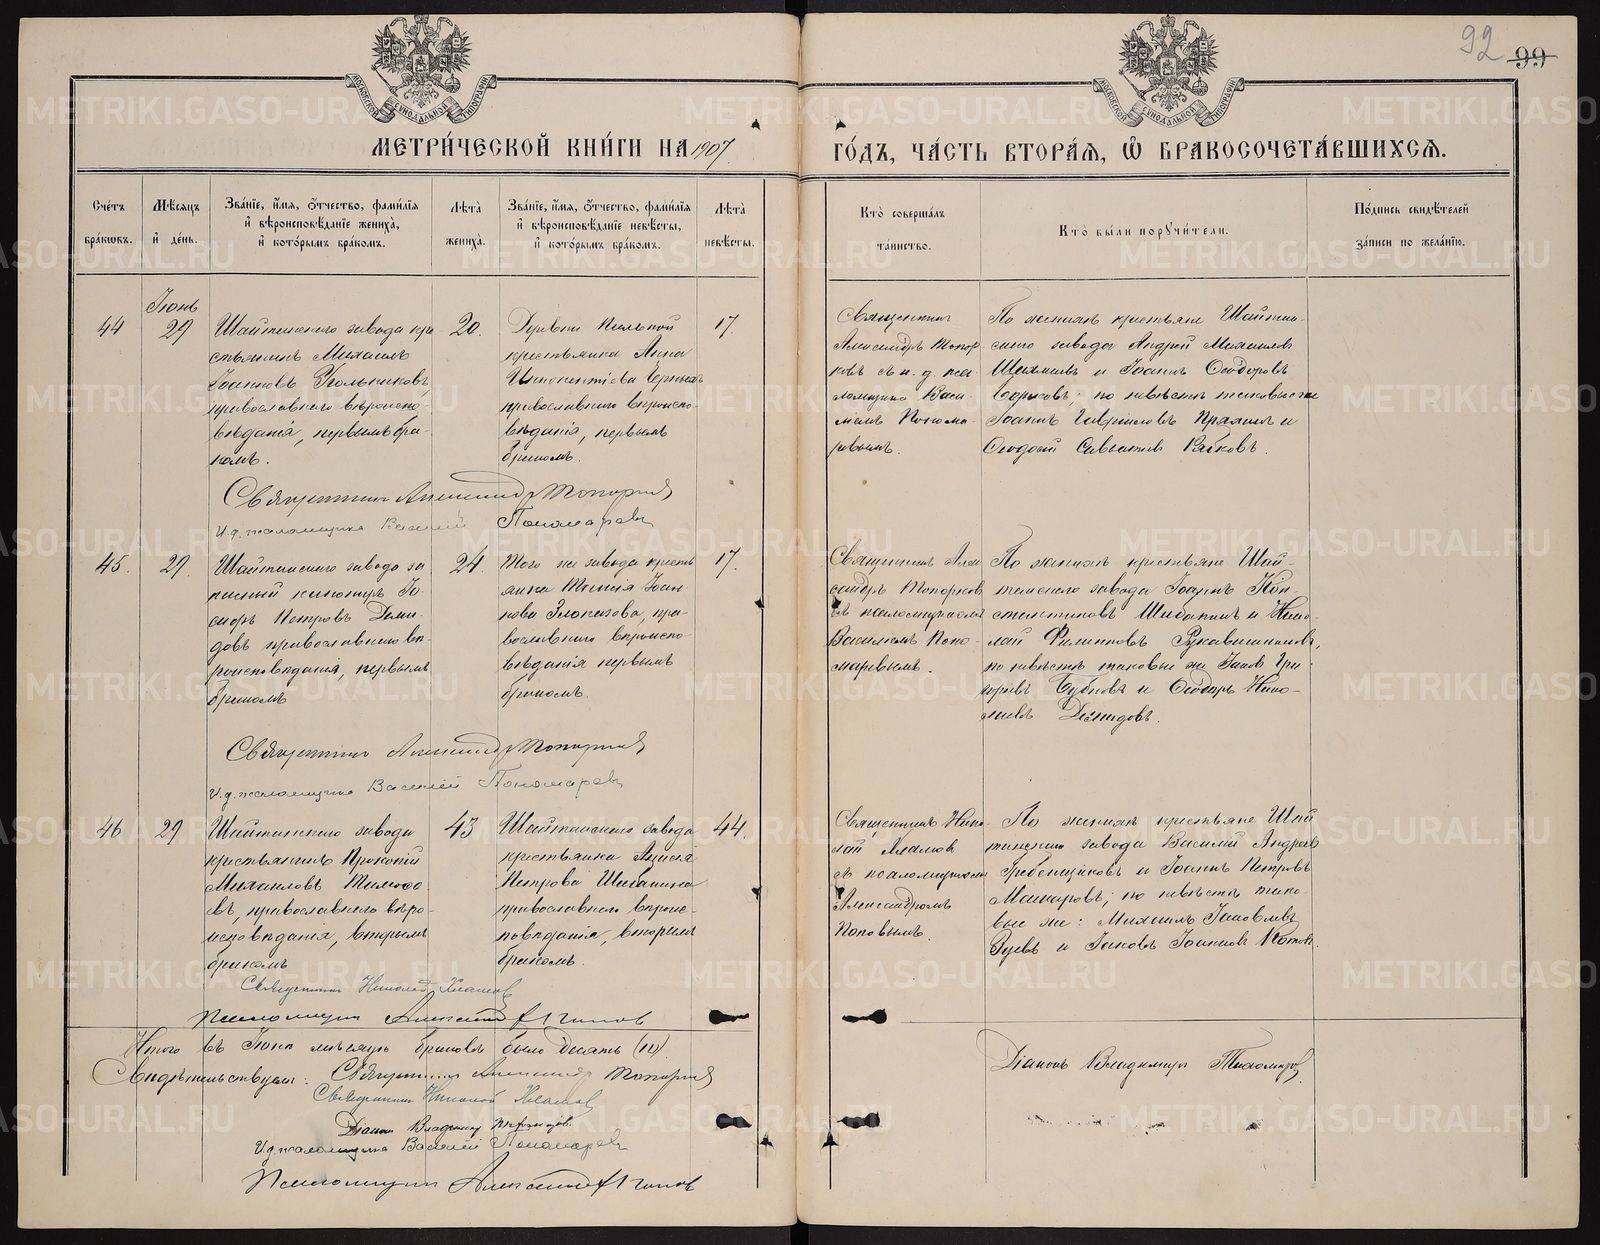 92 99
МЕТРИ́ЧЕСКОЙ КНИ́ГИ НА 1907
ГО́ДЪ, ЧА́СТЬ ВТОРА́Я, Ѡ БРАКОСОЧЕТА́ВШИХСЯ.
Сче́тъ бра́кωвъ.
Мѣ́сяцъ и҆ де́нь.
Зва́нїе, и҆́мя, о҆́тчество, фами́лїя и҆ вѣроисповѣ́данїе жениха̀, и҆ кото́рымъ бра́комъ.
Лѣ́та жениха̀.
Зва́нїе, и҆́мя, о҆́тчество, фами́лїя и҆ вѣроисповѣ́данїе невѣ́сты, и҆ кото́рымъ бра́комъ.
Лѣ́та невѣ́сты.
Кто̀ соверша́лъ та́инство.
Кто̀ бы́ли порꙋчи́тели.
По́дпись свидѣ́телей за́писи по жела́нїю.
Іюнь
44
29
Шайтанскаго завода кре
стьянинъ Михаилъ
Іоанновъ Угольниковъ,
православнаго вѣроиспо-
вѣданія, первымъ бра-
комъ.
20.
Деревни
крестьянка Анна
Иннокентіева Черныхъ
православнаго вѣроиспо-
вѣданія, первымъ
бракомъ.
17.
Священник
Александръ Топор-
ковъ съ и. д. пса
ломщика Васи
ліемъ Понома-
ревымъ.
По женихѣ крестьяне Шайтан-
скаго завода Андрей Михаиловъ
и Іоаннъ Ѳеодоровъ
по невѣстѣ таковые же
Іоаннъ Гавріиловъ и
Ѳеодосій Савватіевъ
Священникъ Александръ Топорковъ
И. д. псаломщика Василій Пономаревъ
45.
29.
Шайтанскаго завода за
пасный канониръ
Петровъ Деми
довъ православнаго вѣ
роисповѣданія, первымъ
бракомъ
24.
Того же завода кресть
янка Таисія Іоан
нова Злоказова, пра-
вославнаго вѣроиспо-
вѣданія первымъ
бракомъ.
17.
Священникъ Алек
сандръ Топорковъ
съ псаломщикомъ
Василіемъ Поно-
маревымъ.
По женихѣ крестьяне Шай-
танскаго завода Іоаннъ Кон-
стантиновъ Шибакинъ и Нико-
лай Филипповъ Рукавишниковъ,
по невѣстѣ таковые же Іаковъ Гри
горьевъ и Ѳеодоръ Нико-
лаевъ Демидовъ.
Священникъ Александръ Топорковъ
И. д. псаломщика Василій Пономаревъ
46
29
Шайтанскаго завода
крестьянинъ Прокопій
Михаиловъ Тимоѳе
евъ, православнаго вѣро-
исповѣданія, вторымъ
бракомъ
43
Шайтанскаго завода
крестьянка
Петрова Шибакина
православнаго вѣроис-
повѣданія, вторымъ
бракомъ.
44.
Священникъ Нико-
лай
съ псаломщикомъ
Александромъ
Поповымъ.
По женихѣ крестьяне Шай
танскаго завода Василій Андреев
Гребенщиковъ и Іоаннъ Петровъ
Макаровъ; по невѣстѣ тако-
вые же: Михаилъ Іаковлевъ
и Іаковъ Іоанновъ
Священникъ Николай
Псаломщикъ Александръ Поповъ
Итого въ Іюнѣ мѣсяцѣ браковъ было десять (10)
Свидѣтельствуемъ: Священникъ Александръ Топорковъ
Священникъ Николай
Діаконъ Владимиръ
И. д. псаломщика Василій Пономаревъ
Псаломщикъ Александръ Поповъ
Діаконъ Владимиръ
METRIKI.GASO-URAL.RU